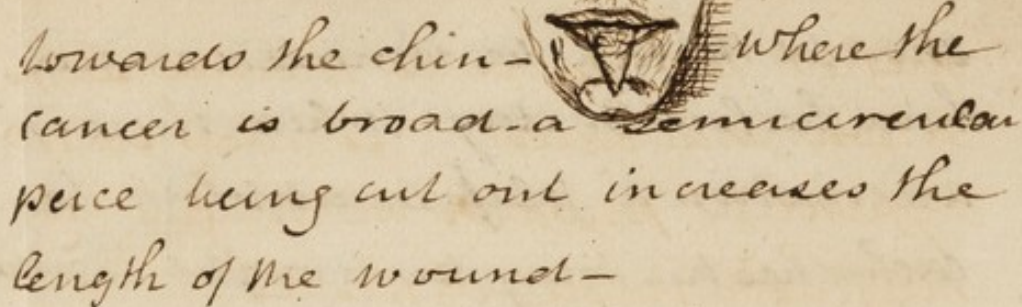 towards the chin - where the
cancer is broad - a semicircular
peice being cut out increases the
length of the wound -